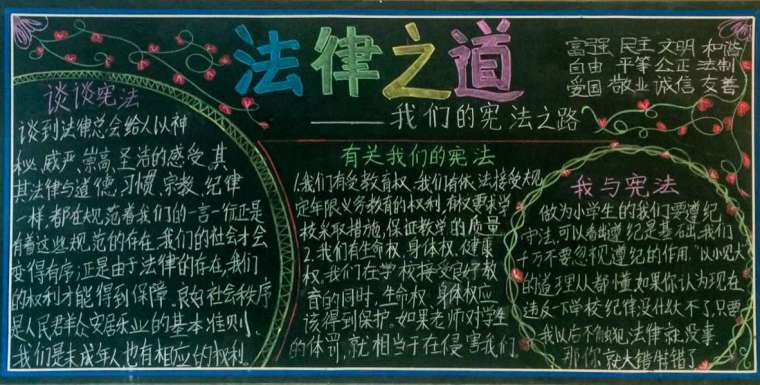 法律之道
——我们的宪法之路
富强 民主 文明 和谐
自由 平等 公正 法制
爱国 敬业 诚信 友善
谈谈宪法
谈到法律总会给人以神
秘、威严、崇高、圣洁的感受,其
其法律与道德、习惯、宗教、纪律
一样,都在规范着我们的一言一行正是
有着这些规范的存在,我们的社会才会
变得有序;正是由于法律的存在,我们
的权利才能得到保障,良好社会秩序
是人民群众安居乐业的基本准则,
我们是未成年人,也有相应的权利。
有关我们的宪法
1.我们有受教育权,我们有依法接受规
定年限义务教育的权利,有权要求学
校采取措施,保证教学的质量
2.我们有生命权,身体权,健康
权。我们在学校接受良好教
育的同时,生命权、身体权应
该得到保护。如果老师对学生
的体罚,就相当于在侵害我们
我与宪法
做为小学生的我们要遵纪
守法,可以看出遵纪是基础,我们
千万不要忽视遵纪的作用,“以小见大
的道理人人都懂如果你认为现在
违反一下学校纪律没什么大不了,只要
我以后不触犯法律就没事,
那你就大错特错了